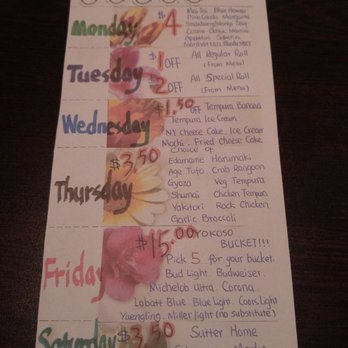 Monday $4 Mai Tai Blue Hawaii
Pina Colada Margarita
Strawberry/Mango Daiq
Cosmo
Appleton
Tuesday $1 OFF All Regular Roll
(From Menu)
$2 OFF All Special Roll
(From Menu)
Wednesday $1.50 OFF Tempura Banana
Tempura Ice Cream
NY Cheese Cake, Ice Cream
Mochi, Fried Cheese Cake
Thursday $3.50 Choice of
Edamame Harumaki
Age Tofu Crab Rangoon
Gyoza Veg Tempura
Shumai Chicken Tempura
Yakitori Rock Chicken
Garlic Broccoli
Friday $15.00 YOKOSO
BUCKET!!!
Pick 5 for your bucket
Bud Light Budweiser
Michelob Ultra Corona
Labatt Blue Blue Light Coors Light
Yuengling Miller light (no substitute)
Saturday $3.50 Sutter Home